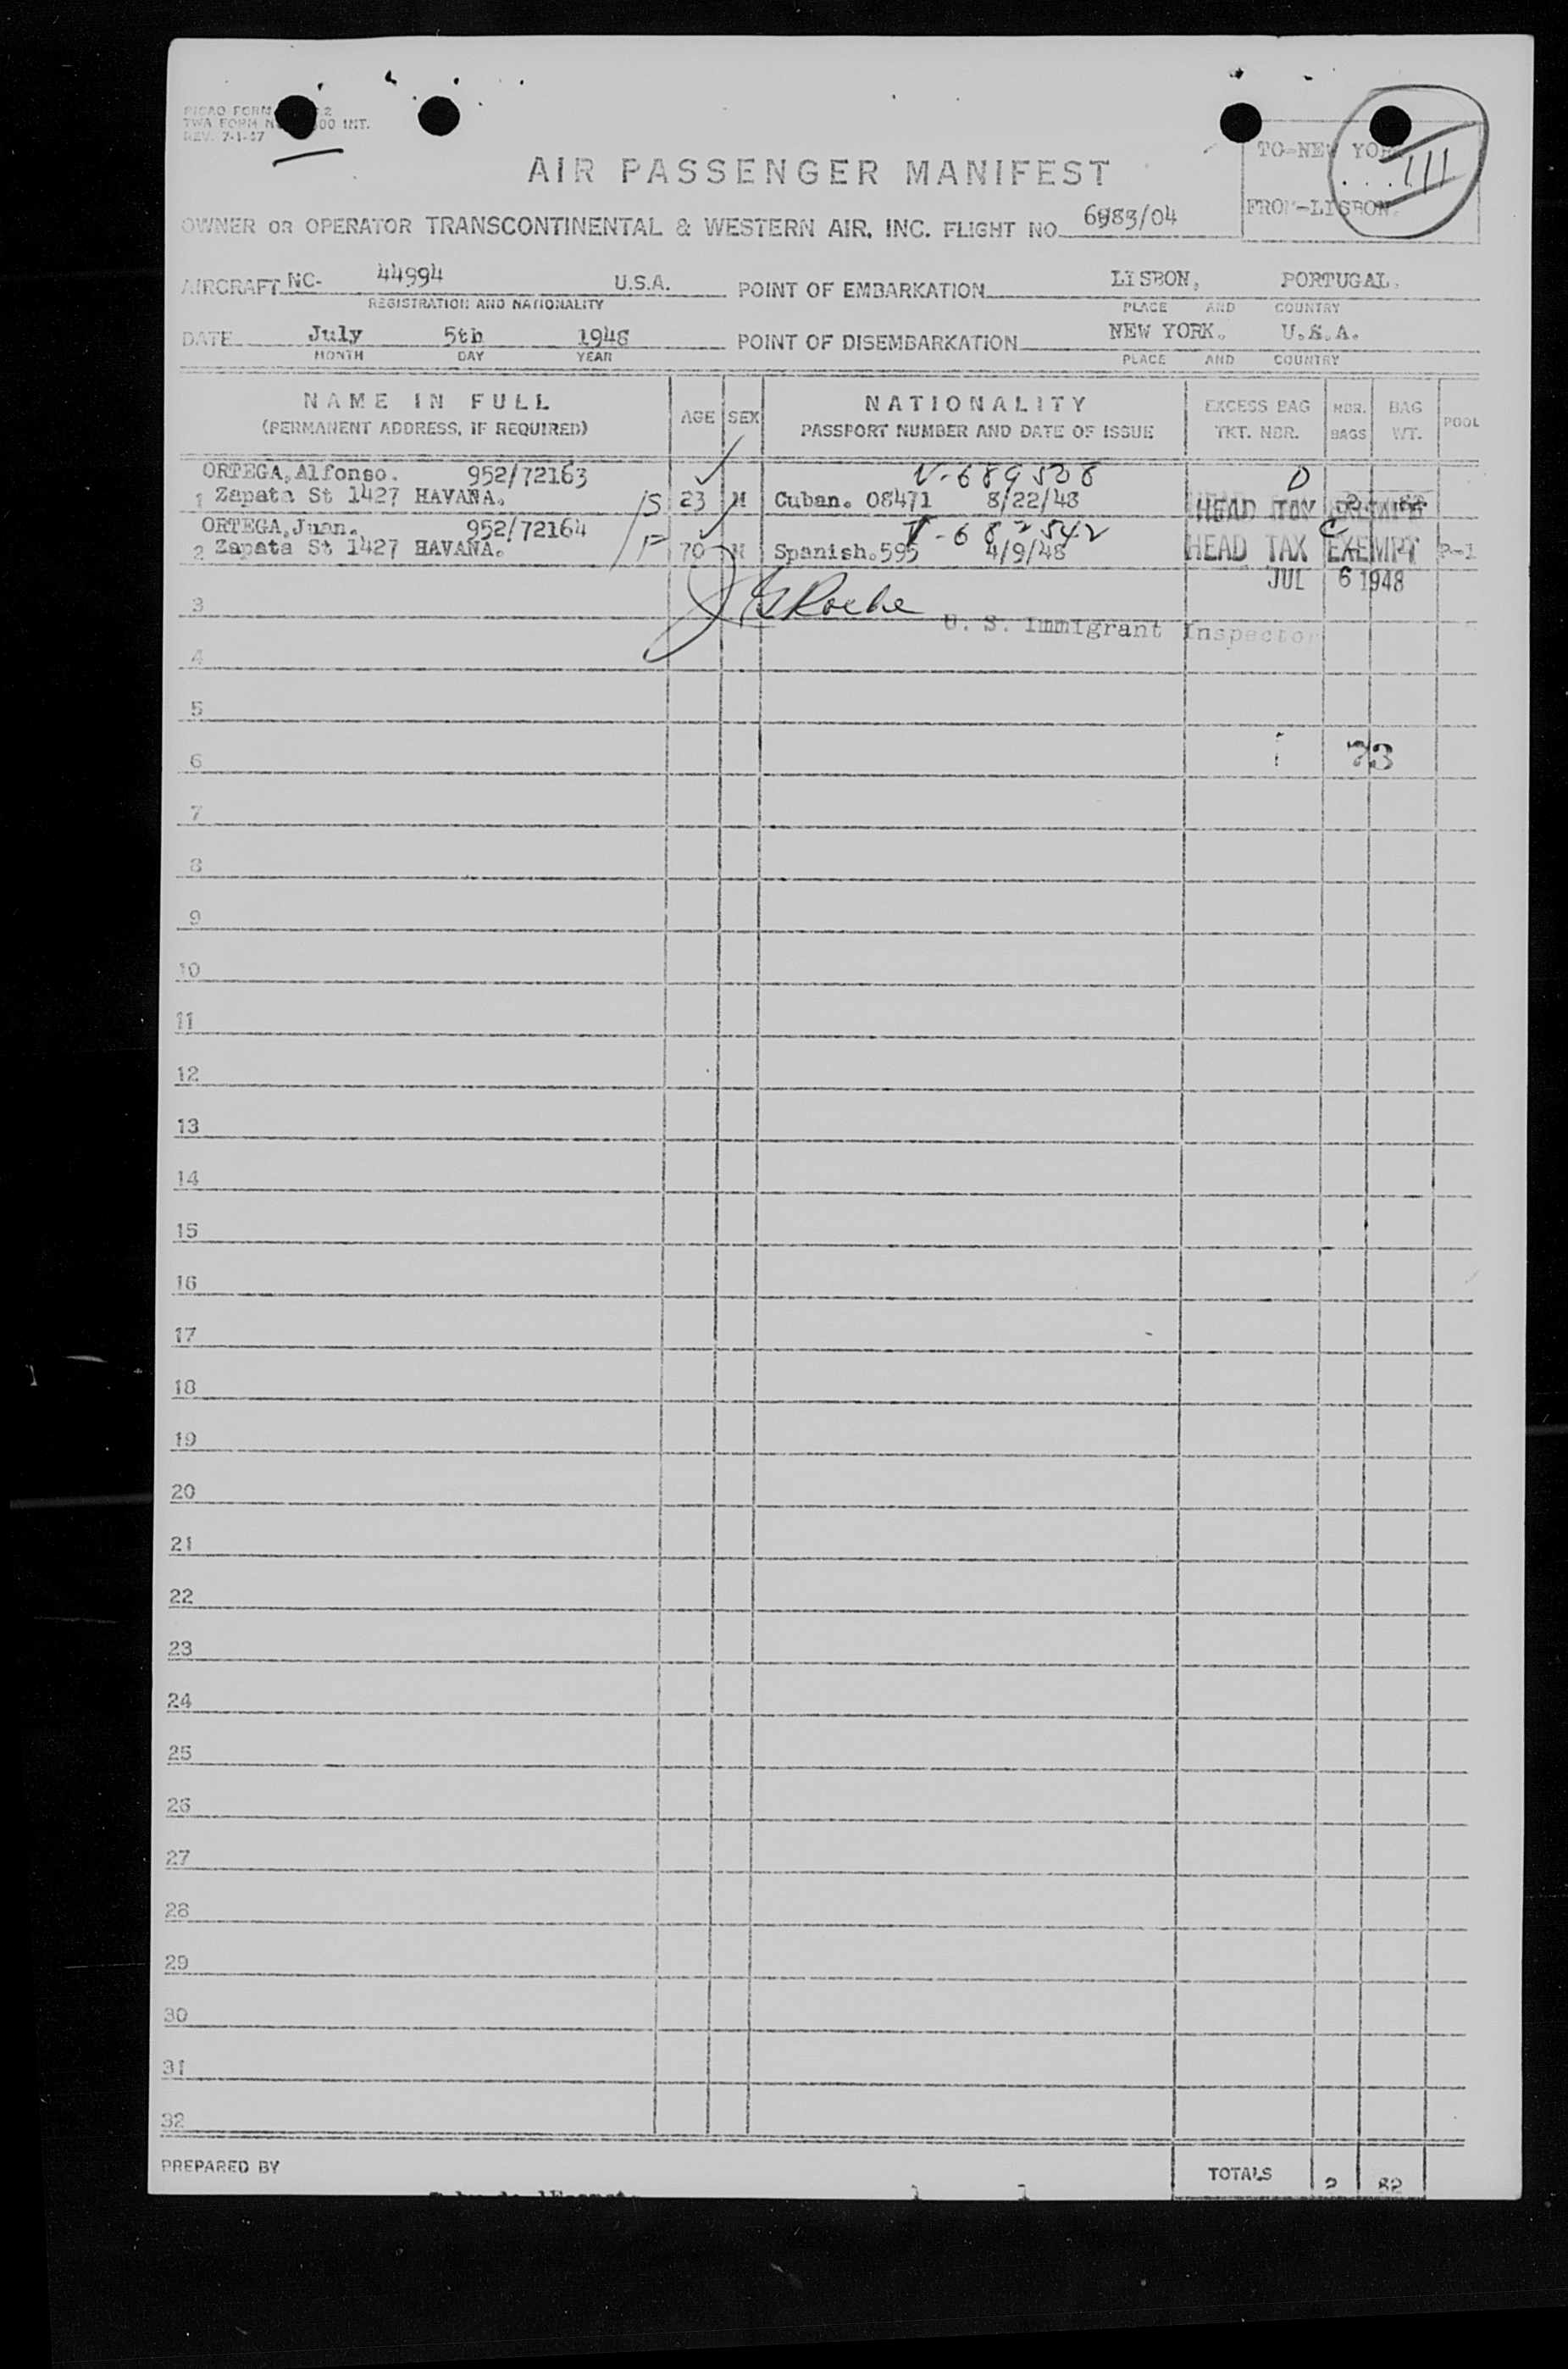 TWA FORM
REV. 7-1-47
TO-NEW YORK
111
FROM-LISBON.
AIR PASSENGER MANIFEST
OWNER OR OPERATOR TRANSCONTINENTAL & WESTERN AIR, INC. FLIGHT NO.
AIRCRAFT NC- 44994 U.S.A. POINT OF EMBARKATION LISBON, PORTUGAL.
REGISTRATION AND NATIONALITY PLACE AND COUNTRY
DATE July 5th 1948 POINT OF DISEMBARKATION NEW YORK. U.S.A.
MONTH DAY YEAR PLACE AND COUNTRY
NAME IN FULL AGE SEX NATIONALITY EXCESS BAG NBR. BAG POOL
(PERMANENT ADDRESS, IF REQUIRED) PASSPORT NUMBER AND DATE OF ISSUE TKT. NBR. BAGS WT.
ORTEGA,Alfonso. 952/72163
1 Zapata St 1427 HAVANA. S 23 M Cuban. 08471 8/22/48 HEAD TAX EXEMPT
ORTEGA,Juan. 952/72164
2 Zapata St 1427 HAVANA. F 70 M Spanish.595 4/9/48 HEAD TAX EXEMPT
JUL 6 1948
3
U. S. Immigrant Inspector
4
5
6 73
7
8
9
10
11
12
13
14
15
16
17
18
19
20
21
22
23
24
25
26
27
28
29
30
31
32
PREPARED BY TOTALS 2 82